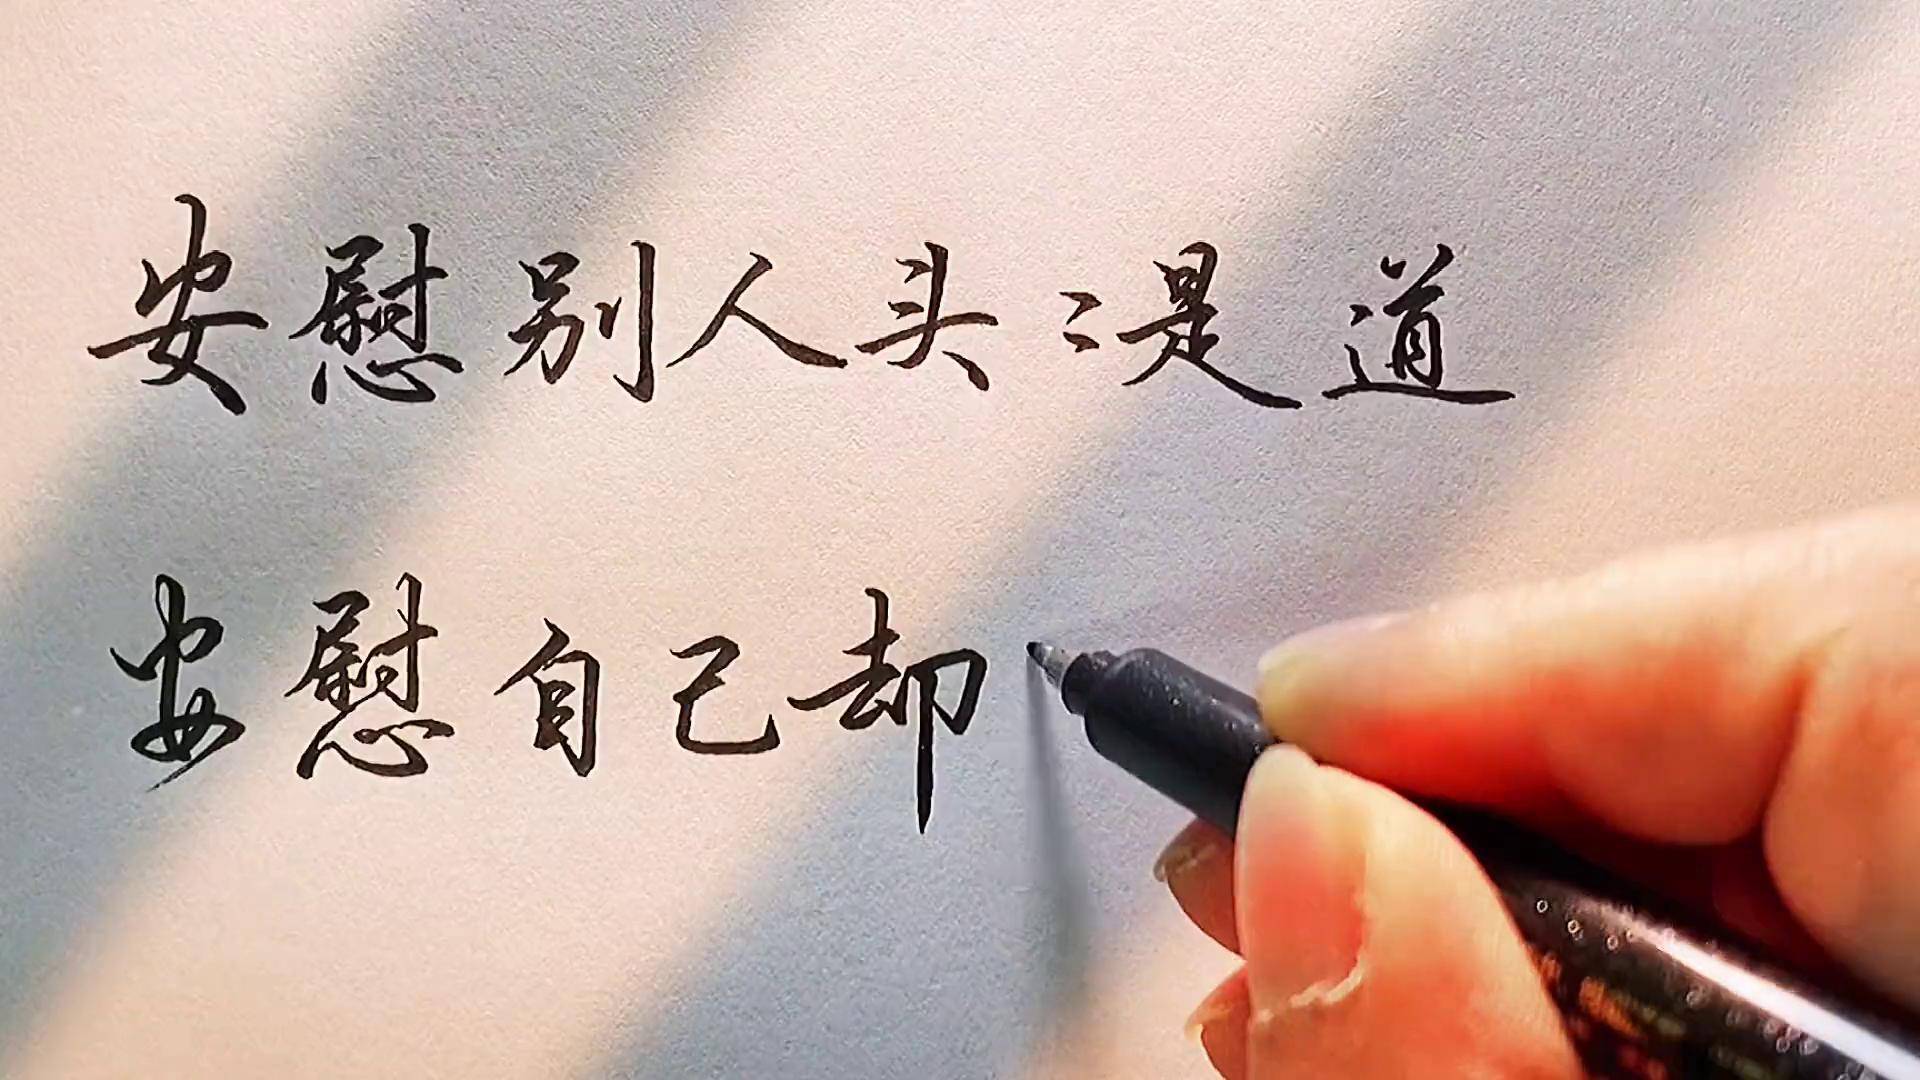 安慰别人头〻是道
安慰自己却